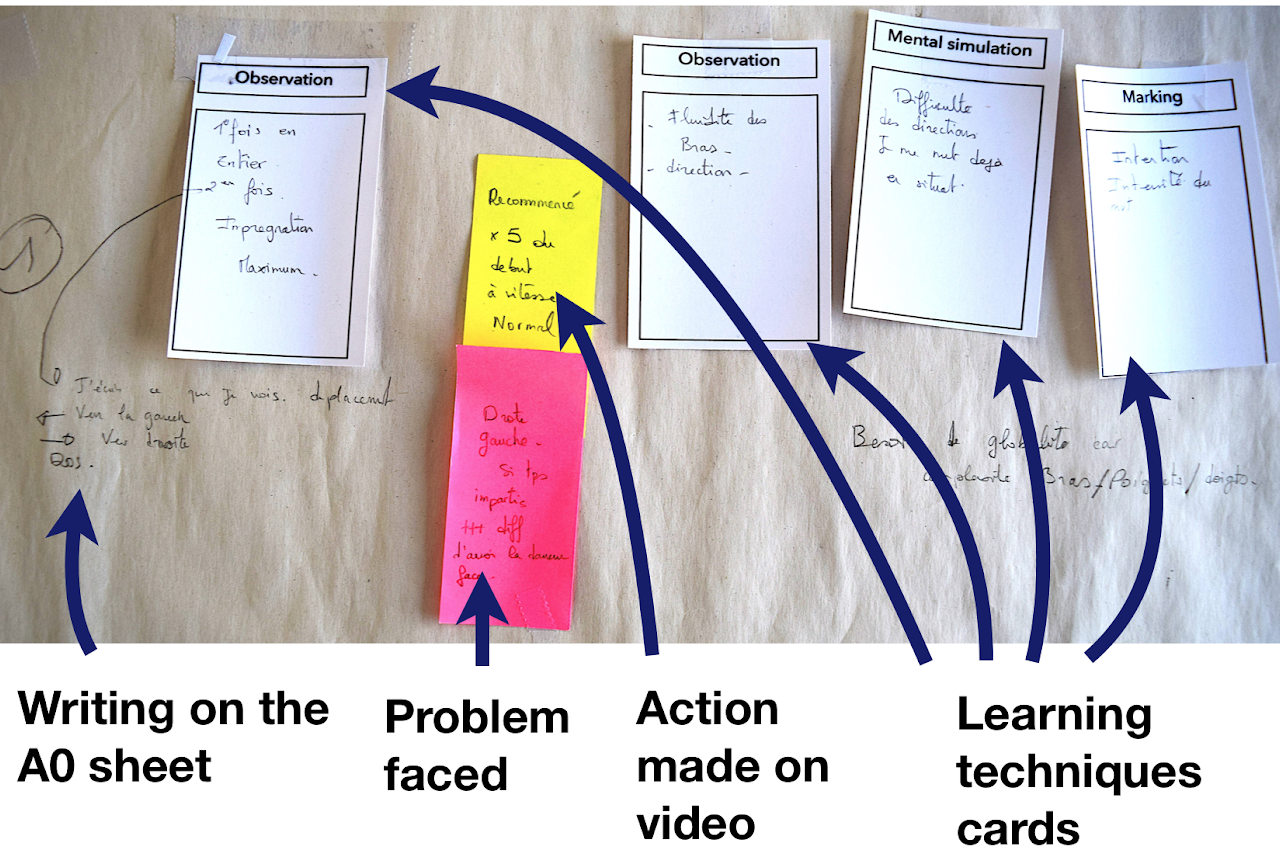 Observation
1° fois en
Entier.
2em fois.
Impregnation
Maximum.
1
J'écris ce que je vois. déplacement
Vers la gauch
Ver droite
Dos.
Recommencé
x 5 du
debut
à vitesse
Normal
Drote
gauche.
si tps
impartis
+++ diff
d'avoir la danseuse
face.
Observation
- Fluidité des
Bras -
- direction -
Mental simulation
Difficulté
des directions
I me met deja
en situat.
Marking
Intention
Intensité du
Besoin de globalité car
complexité Bras/Poignets/doigts.
Writing on the
A0 sheet
Problem
faced
Action
made on
video
Learning
techniques
cards